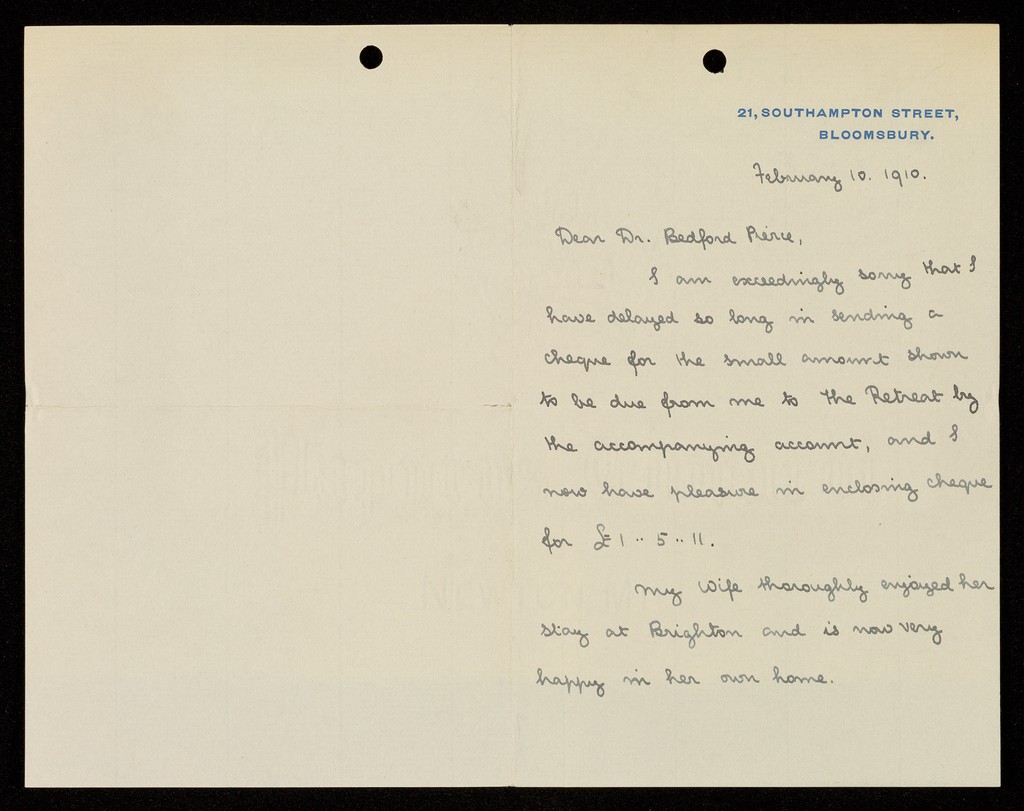 21, SOUTHAMPTON STREET,
BLOOMSBURY.
February 10. 1910.
Dear Dr. Bedford Pierce,
I am exceedingly sorry that I
have delayed so long in sending a
cheque for the small amount shown
to be due from me to The Retreat by
the accompanying account, and I
now have pleasure in enclosing cheque
for £1 .. 5 .. 11.
My Wife thoroughly enjoyed her
stay at Brighton and is now very
happy in her own home.